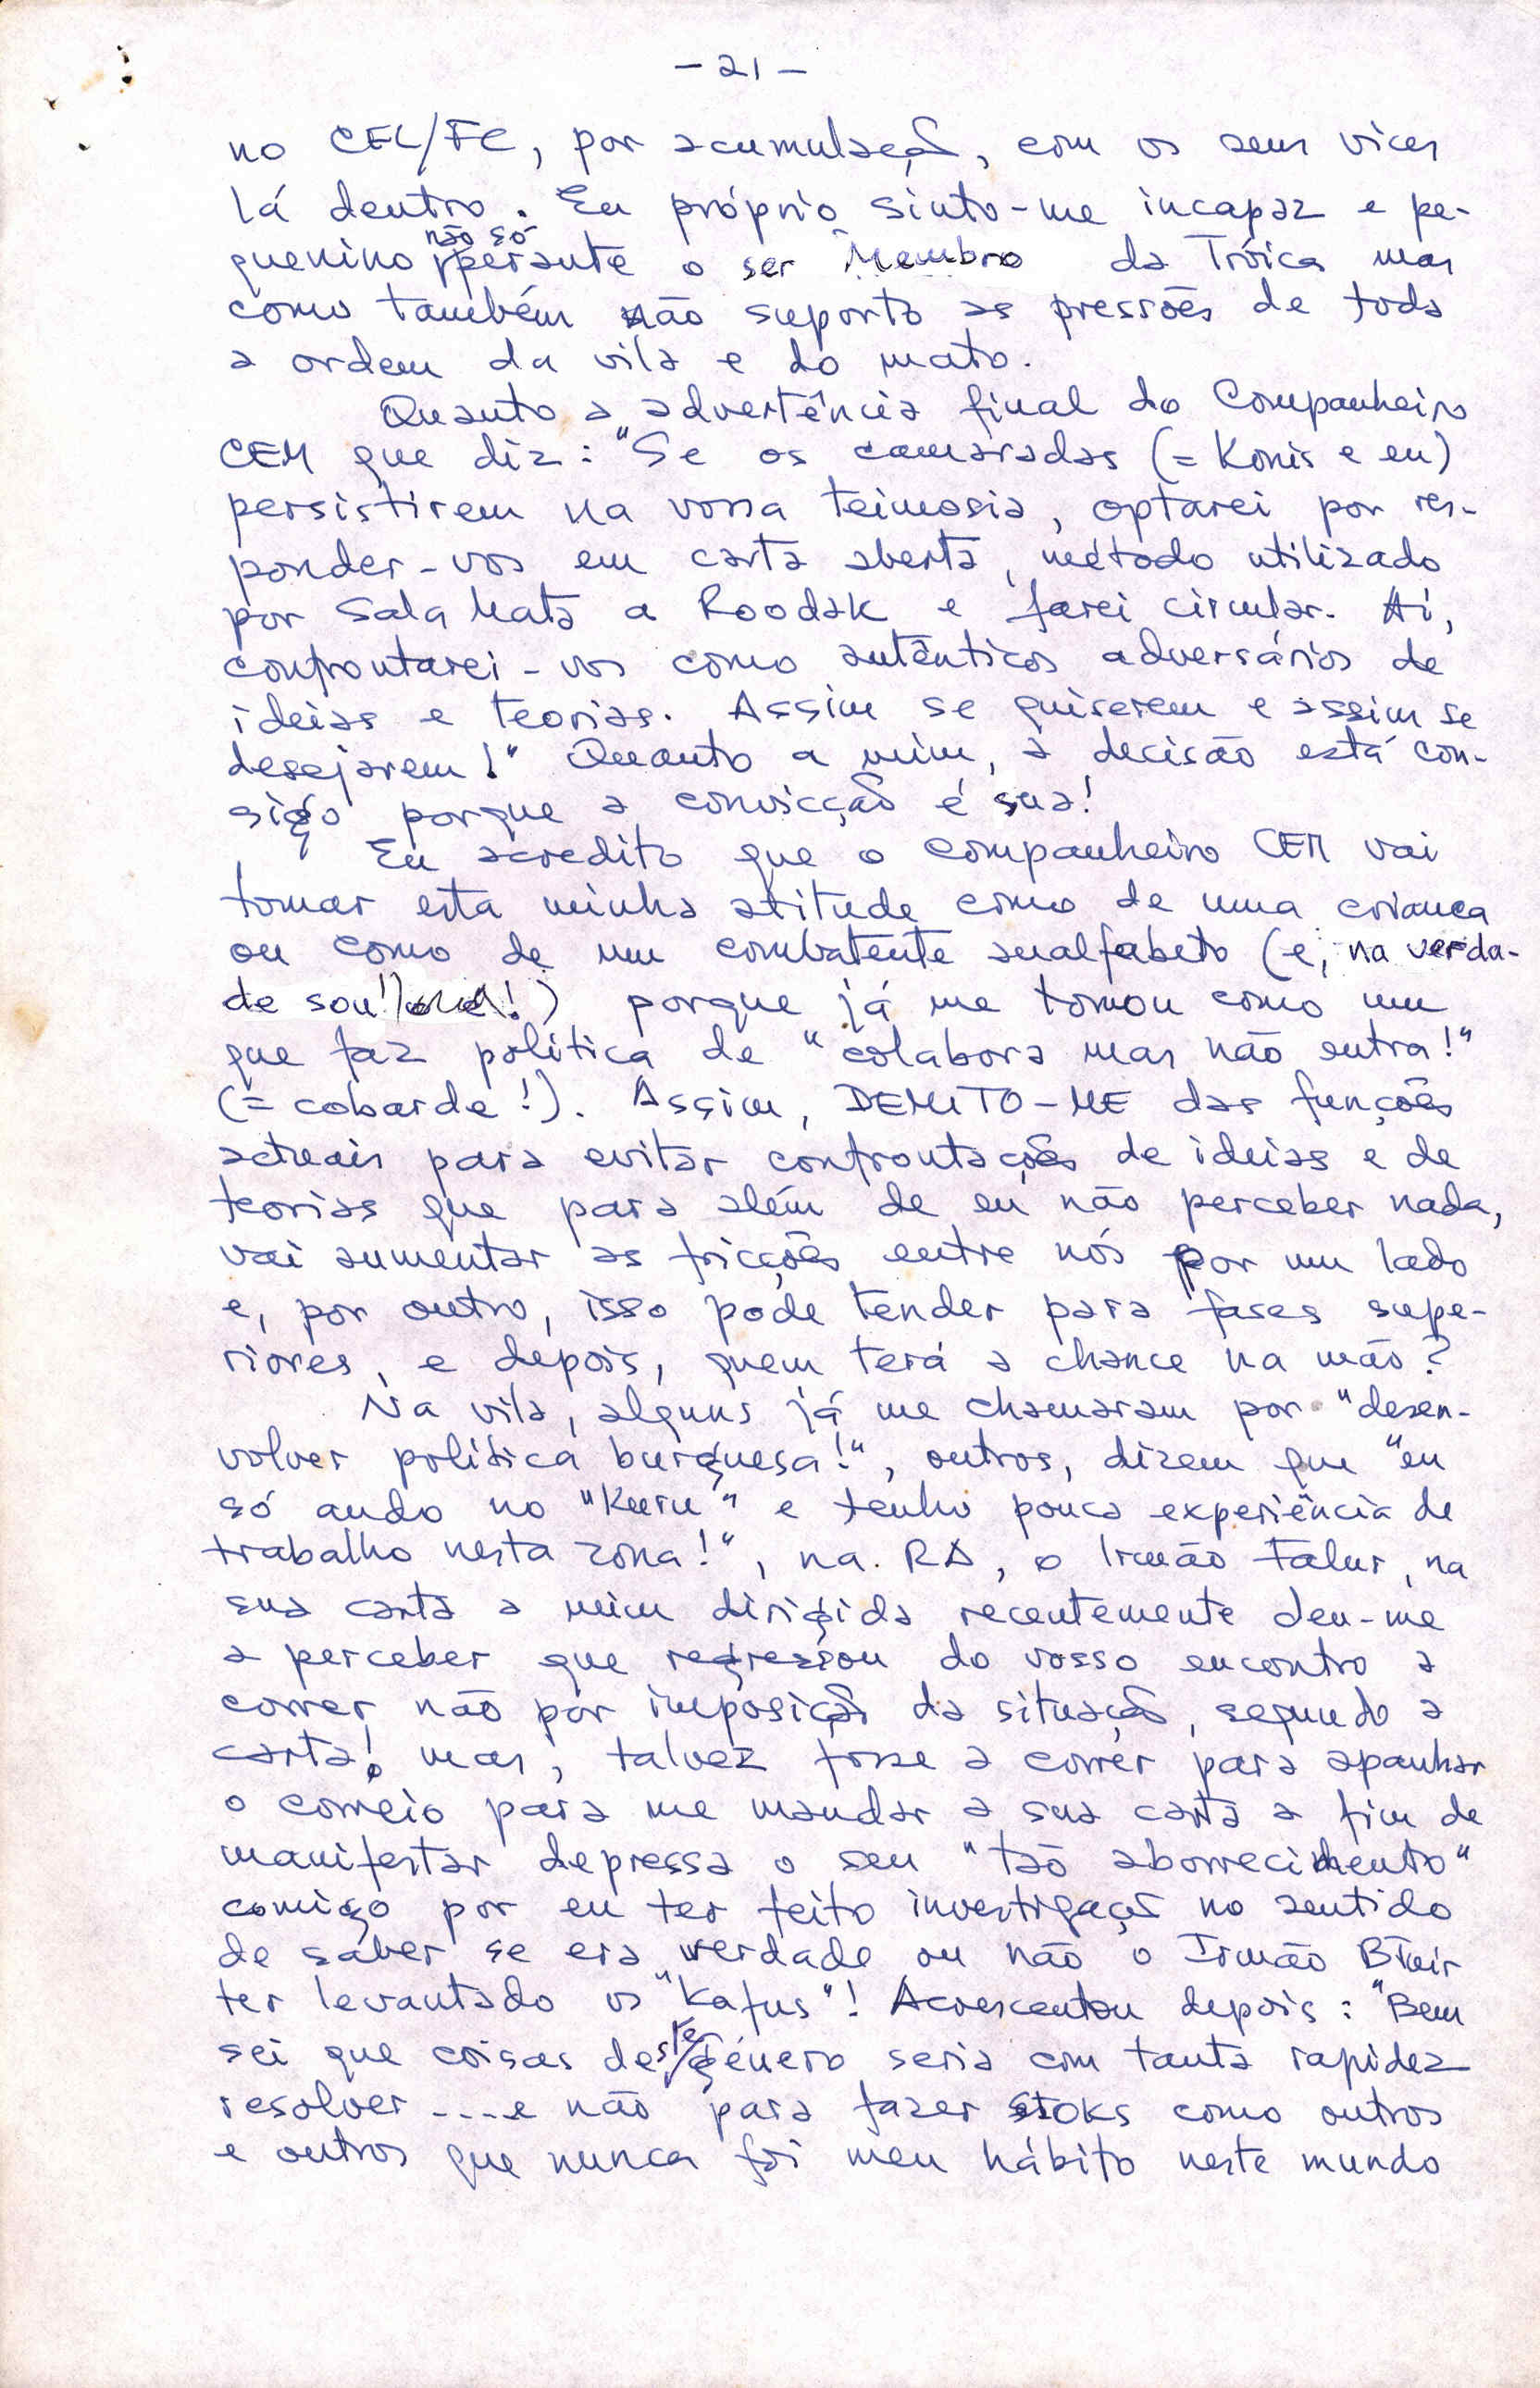 - 21 -
no CEL/FC, por acumulação, com os seus vices
lá dentro. Eu próprio sinto-me incapaz e pe-
quenino não só perante o ser Membro da Tróica mas
como também não suporto as pressões de toda
a ordem da vila e do mato.
Quanto a advertência final do Companheiro
CEM que diz: "Se os camaradas (= Konis e eu)
persistirem na vossa teimosia, optarei por res-
ponder-vos em carta aberta, método utilizado
por Sala Mata a Roodak e farei circular. Aí,
confrontarei-vos como autênticos adversários de
ideias e teorias. Assim se quiserem e assim se
desejarem!" Quanto a mim, a decisão está con-
sigo porque a convicção é sua!
Eu acredito que o companheiro CEM vai
tomar esta minha atitude como de uma criança
ou como de um combatente analfabeto (e, na verda-
de sou!) porque já me tomou como um
que faz política de "colabora mas não entra!"
(= cobarde!). Assim, DEMITO-ME das funções
actuais para evitar confrontações de ideias e de
teorias que para além de eu não perceber nada,
vai aumentar as fricções entre nós por um lado
e, por outro, isso pode tender para fases supe-
riores, e depois, quem terá a chance na mão?
Na vila, alguns já me chamaram por "desen-
volver política burguesa!", outros, dizem que "eu
só ando no "Kuru" e tenho pouca experiência de
trabalho nesta zona!", na RA, o Irmão Falur, na
sua carta a mim dirigida recentemente deu-me
a perceber que regressou do vosso encontro a
correr não por imposição da situação, segundo a
carta! mas, talvez fosse a correr para apanhar
o correio para me mandar a sua carta a fim de
manifestar depressa o seu "tão aborrecimento"
comigo por eu ter feito investigação no sentido
de saber se era verdade ou não o Irmão
ter levantado os "Kafus"! Acrescentou depois: "Bem
sei que coisas deste género seria com tanta rapidez
resolver ....e não para fazer stoks como outros
e outros que nunca foi meu hábito neste mundo